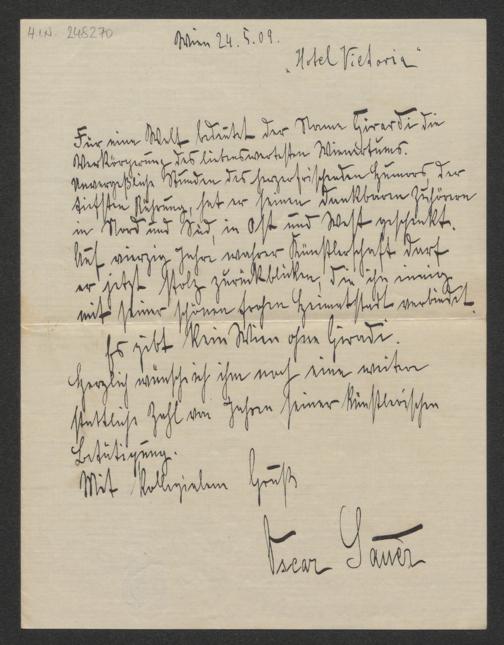 H.I.N. 248270
Wien 24. 5. 09.
"Hotel Victoria"
Für eine Welt bedeutet der Name Girardi die
Verkörperung des liebenswertesten Wienertums.
Unvergeßliche Stunden des herzerfrischenden Humors, der
tiefsten Rührung, hat er seinen dankbaren Zuhörern
in Nord und Süd, in Ost und West geschenkt.
Auf vierzig Jahre wahrer Künstlerschaft darf
er jetzt stolz zurückblicken, die ihn innig
mit seiner schönen frohen Heimatstadt verbindet.
Es gibt kein Wien ohne Girardi.
Herzlich wünsche ich ihm noch eine weitere
stattliche Zahl von Jahren seiner künstlerischen
Betätigung.
Mit kollegialem Gruß
Oscar Sauer